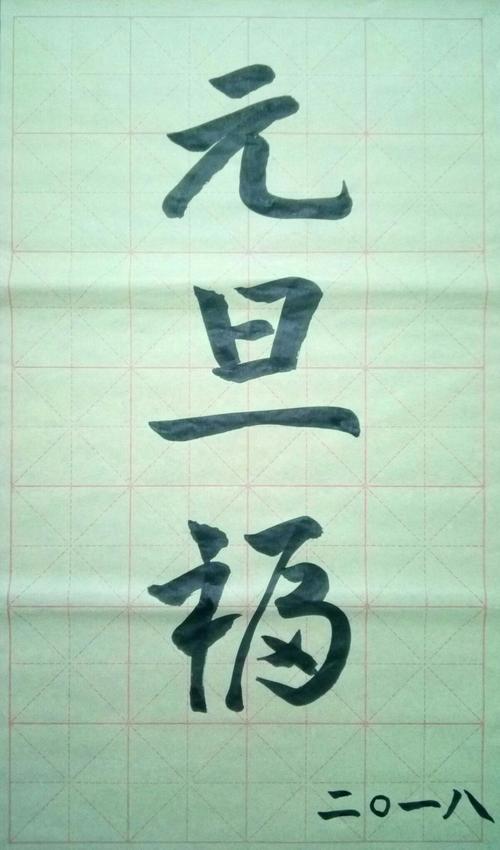 元旦福
二〇一八